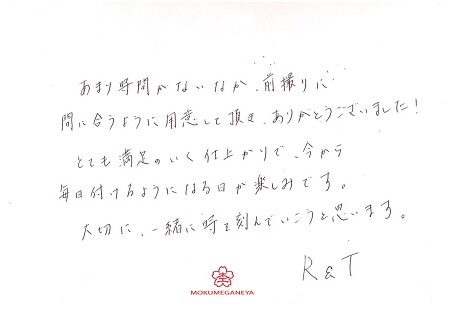 あまり時間がないなか、前撮りに
間に合うように用意して頂き、ありがとうございました！
とても満足のいく仕上がりで、今から
毎日付けるようになる日が楽しみです。
大切に、一緒に時を刻んでいこうと思います。
R & T
MOKUMEGANEYA